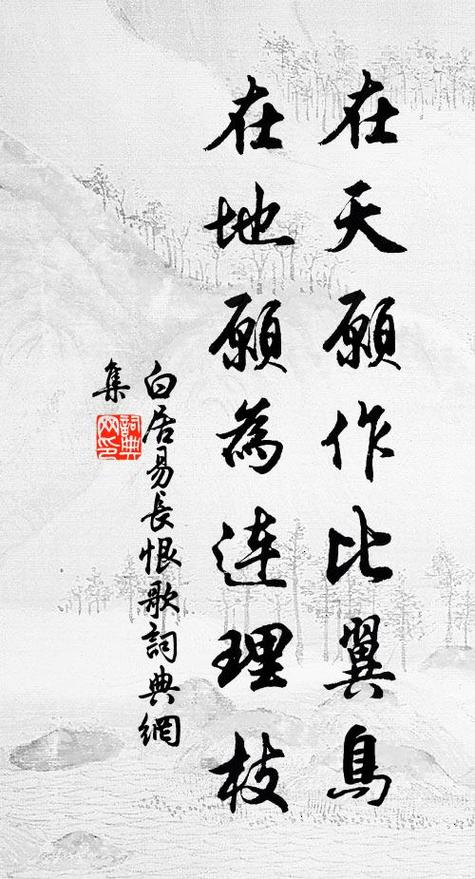 在天願作比翼鳥
在地願為連理枝
白居易長恨歌詞典網
集
詞典網印